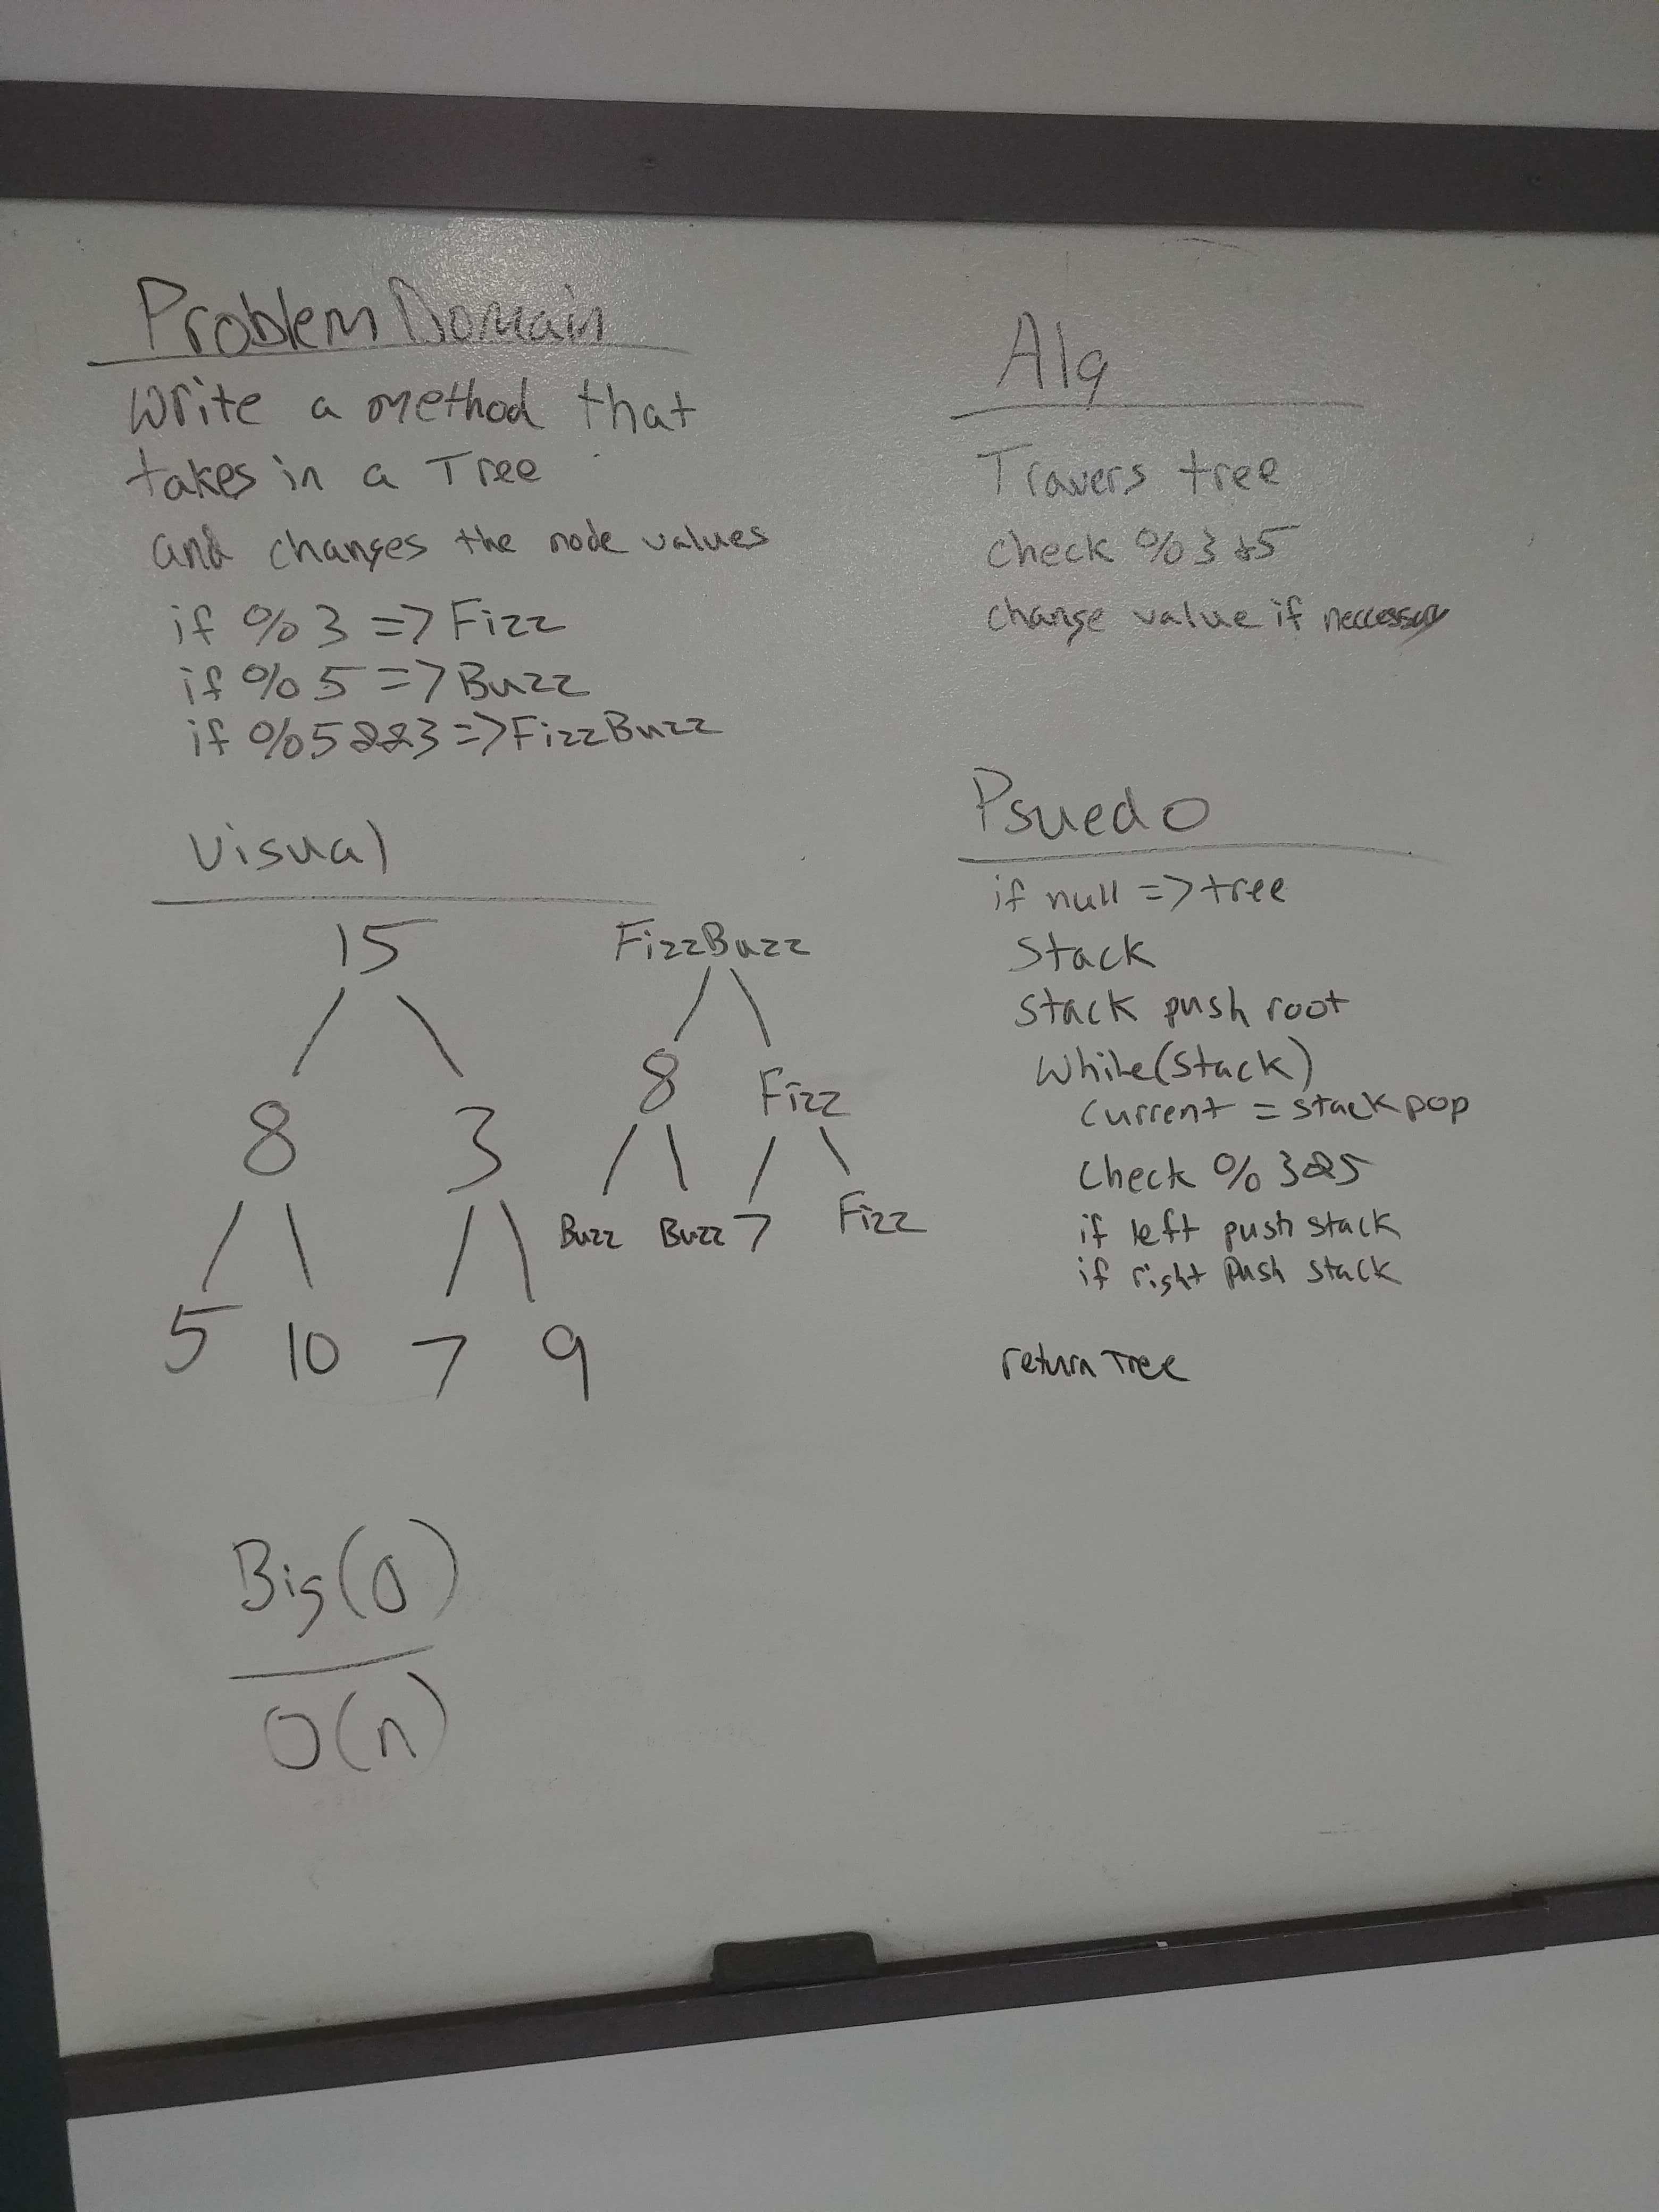 Problem Domain
Write a method that
takes in a Tree
and changes the node values
if %3 => Fizz
if %5 => Buzz
if %5&&3 => FizzBuzz
Visual
15
8 3
5 10 7 9
FizzBuzz
8 Fizz
Buzz Buzz 7 Fizz
Big(O)
O(n)
Alg
Travers tree
check %3&5
change value if neccessary
Psuedo
if null => tree
Stack
stack push root
While(stack)
current = stack pop
check %3&5
if left push stack
if right push stack
return Tree